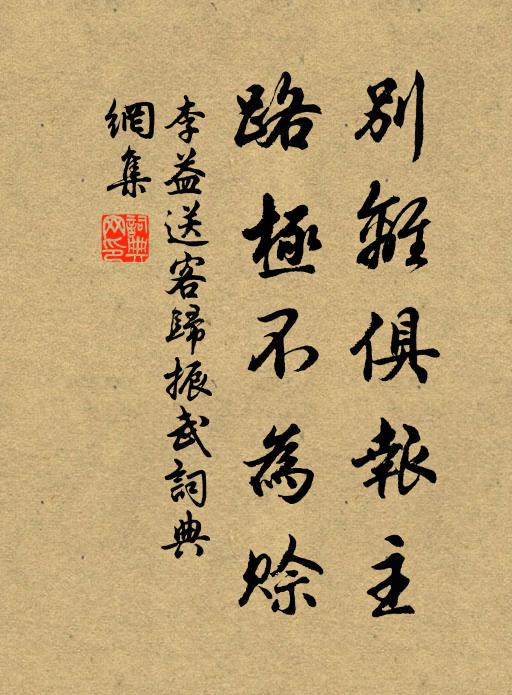 別離俱報主
路極不為賒
李益送客歸振武詞典
網集
詞典
网印